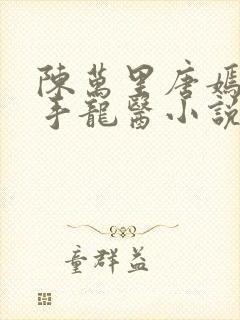 陳萬里唐嫣
手龍醫小說
童群益